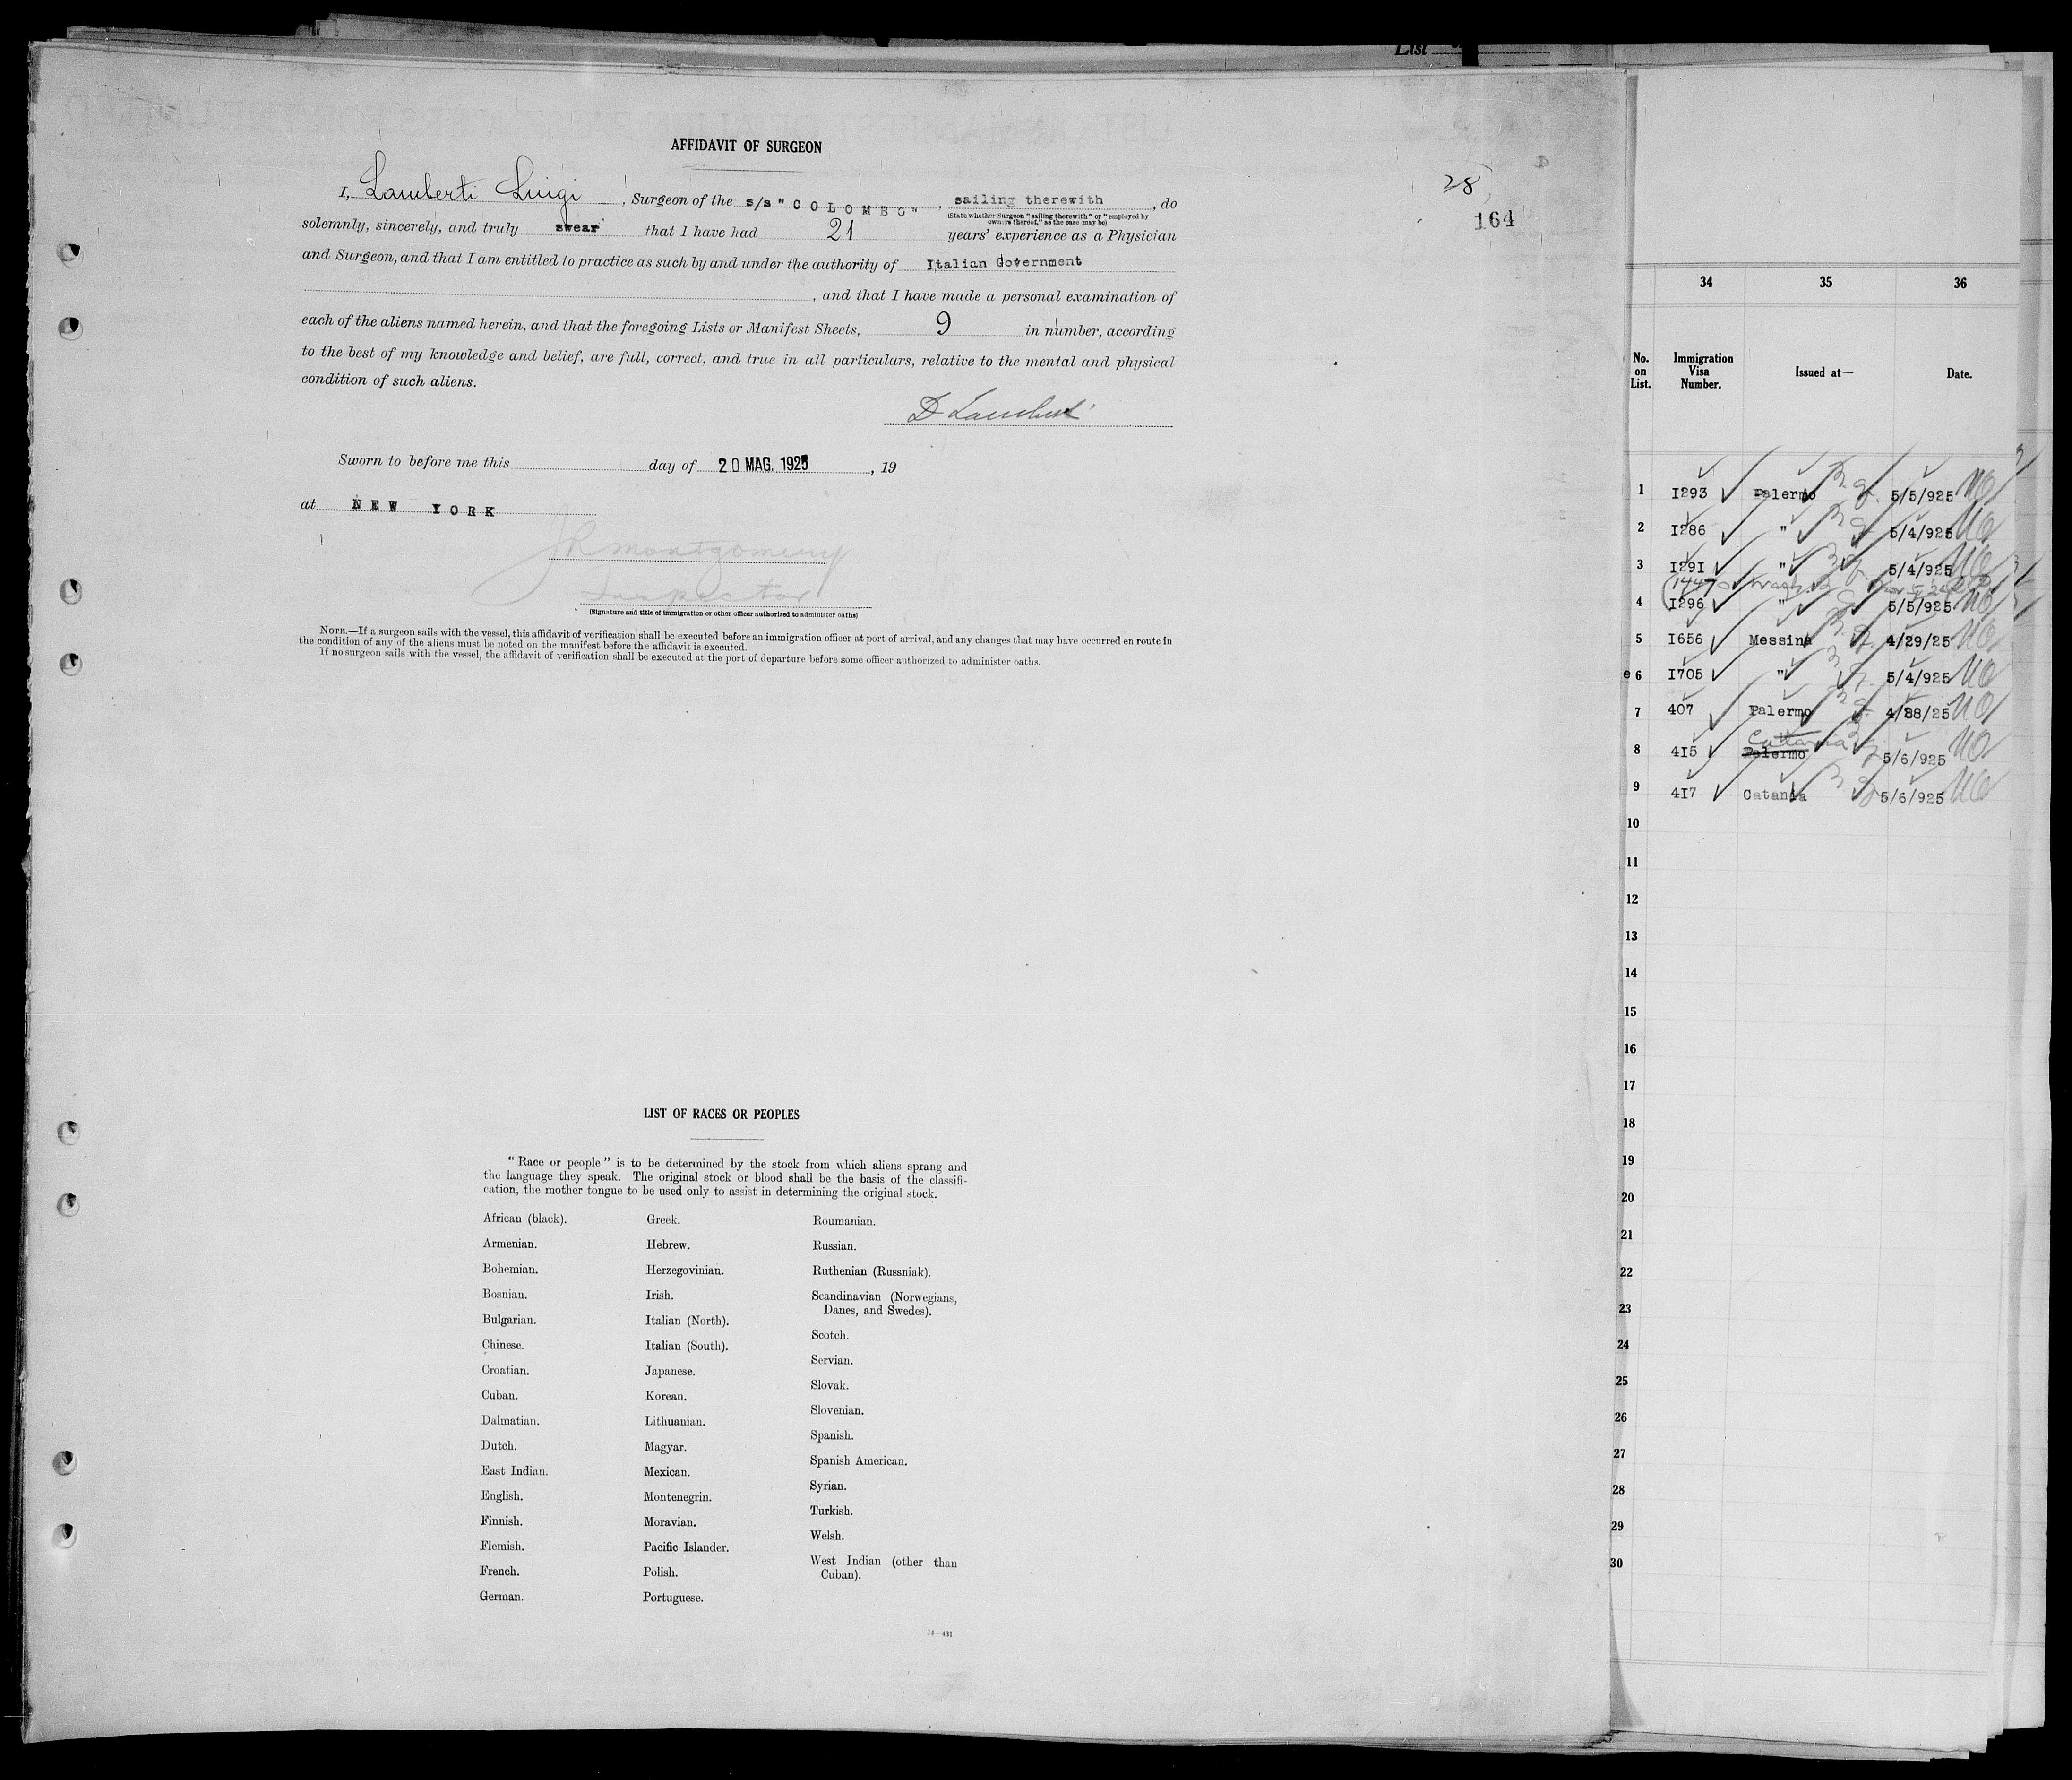 List
AFFIDAVIT OF SURGEON
28
164
I, Lamberti Luigi, Surgeon of the s/s "COLOMBO", sailing therewith, do
(State whether Surgeon "sailing therewith" or "employed by
owners thereof," as the case may be)
solemnly, sincerely, and truly swear that I have had 21 years' experience as a Physician
and Surgeon, and that I am entitled to practice as such by and under the authority of Italian Government
, and that I have made a personal examination of
each of the aliens named herein, and that the foregoing Lists or Manifest Sheets, 9 in number, according
to the best of my knowledge and belief, are full, correct, and true in all particulars, relative to the mental and physical
condition of such aliens.
D Lamberti
Sworn to before me this day of 20 MAG. 1925, 19
at NEW YORK
JR Montgomery
Inspector
(Signature and title of immigration or other officer authorized to administer oaths)
NOTE.—If a surgeon sails with the vessel, this affidavit of verification shall be executed before an immigration officer at port of arrival, and any changes that may have occurred en route in
the condition of any of the aliens must be noted on the manifest before the affidavit is executed.
If no surgeon sails with the vessel, the affidavit of verification shall be executed at the port of departure before some officer authorized to administer oaths.
LIST OF RACES OR PEOPLES
"Race or people" is to be determined by the stock from which aliens sprang and
the language they speak. The original stock or blood shall be the basis of the classifi-
cation, the mother tongue to be used only to assist in determining the original stock.
African (black).
Armenian.
Bohemian.
Bosnian.
Bulgarian.
Chinese.
Croatian.
Cuban.
Dalmatian.
Dutch.
East Indian.
English.
Finnish.
Flemish.
French.
German.
Greek.
Hebrew.
Herzegovinian.
Irish.
Italian (North).
Italian (South).
Japanese.
Korean.
Lithuanian.
Magyar.
Mexican.
Montenegrin.
Moravian.
Pacific Islander.
Polish.
Portuguese.
Roumanian.
Russian.
Ruthenian (Russniak).
Scandinavian (Norwegians,
Danes, and Swedes).
Scotch.
Servian.
Slovak.
Slovenian.
Spanish.
Spanish American.
Syrian.
Turkish.
Welsh.
West Indian (other than
Cuban).
14—431
34 35 36
No. on List. Immigration Visa Number. Issued at— Date.
1 I293 Palermo 5/5/925
2 I286 " 5/4/925
3 I291 " 5/4/925
4 I296 " 5/5/925
5 I656 Messina 4/29/25
e 6 I705 " 5/4/925
7 407 Palermo 4/28/25
8 4I5 Palermo Catania 5/6/925
9 4I7 Catania 5/6/925
10
11
12
13
14
15
16
17
18
19
20
21
22
23
24
25
26
27
28
29
30